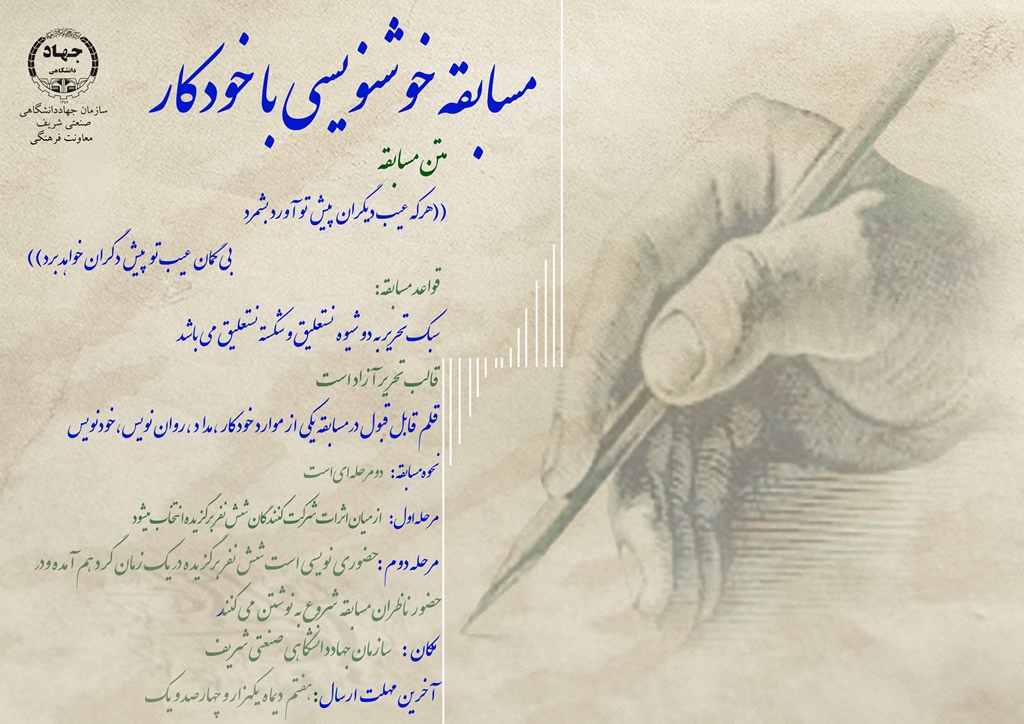 جهاد
دانشگاهی
۱۳۵۹
سازمان جهاددانشگاهی
صنعتی شریف
معاونت فرهنگی
مسابقه خوشنویسی با خودکار
متن مسابقه
((هرکه عیب دیگران پیش تو آورد بشمرد
بی گمان عیب تو پیش دگران خواهد برد))
قواعد مسابقه:
سبک تحریر به دو شیوه نستعلیق و شکسته نستعلیق می باشد
قالب تحریر آزاد است
قلم قابل قبول در مسابقه یکی از موارد خودکار ،مداد ،روان نویس، خودنویس
نحوه مسابقه: دو مرحله ای است
مرحله اول: از میان اثرات شرکت کنندگان شش نفر برگزیده انتخاب میشود
مرحله دوم :حضوری نویسی است شش نفر برگزیده در یک زمان گرد هم آمده و در
حضور ناظران مسابقه شروع به نوشتن می کنند
مکان : سازمان جهاددانشگاهی صنعتی شریف
آخرین مهلت ارسال: هفتم دیماه یکهزار و چهارصد و یک